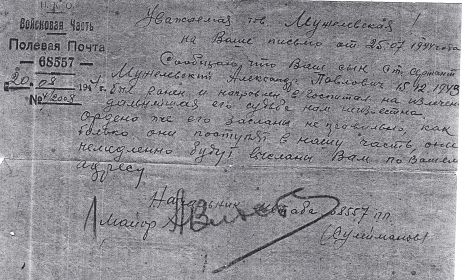 Н.К.О.
Войсковая Часть
Полевая Почта
— 68557 —
20. 08 194
№ 2008
Уважаемая тов. Мужелевская!
на Ваше письмо от 25.07.1944 года
Сообщаю, что Ваш сын ст. сержант
Мужелевский Александр Павлович 15.12.1943
был ранен и направлен в госпиталь на излечение
дальнейшая его судьба нам неизвестна.
Ордена же его засланы как
только они поступят в нашу часть, они
немедленно будут высланы Вам по Вашему
адресу
Начальник штаба 68557 пп
майор
(Сулейманов)